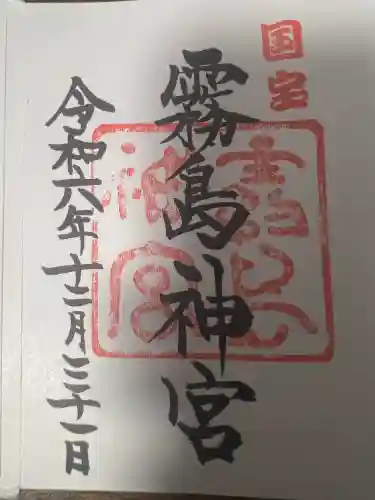 国宝
霧島神宮
霧島神宮
令和六年十二月三十一日